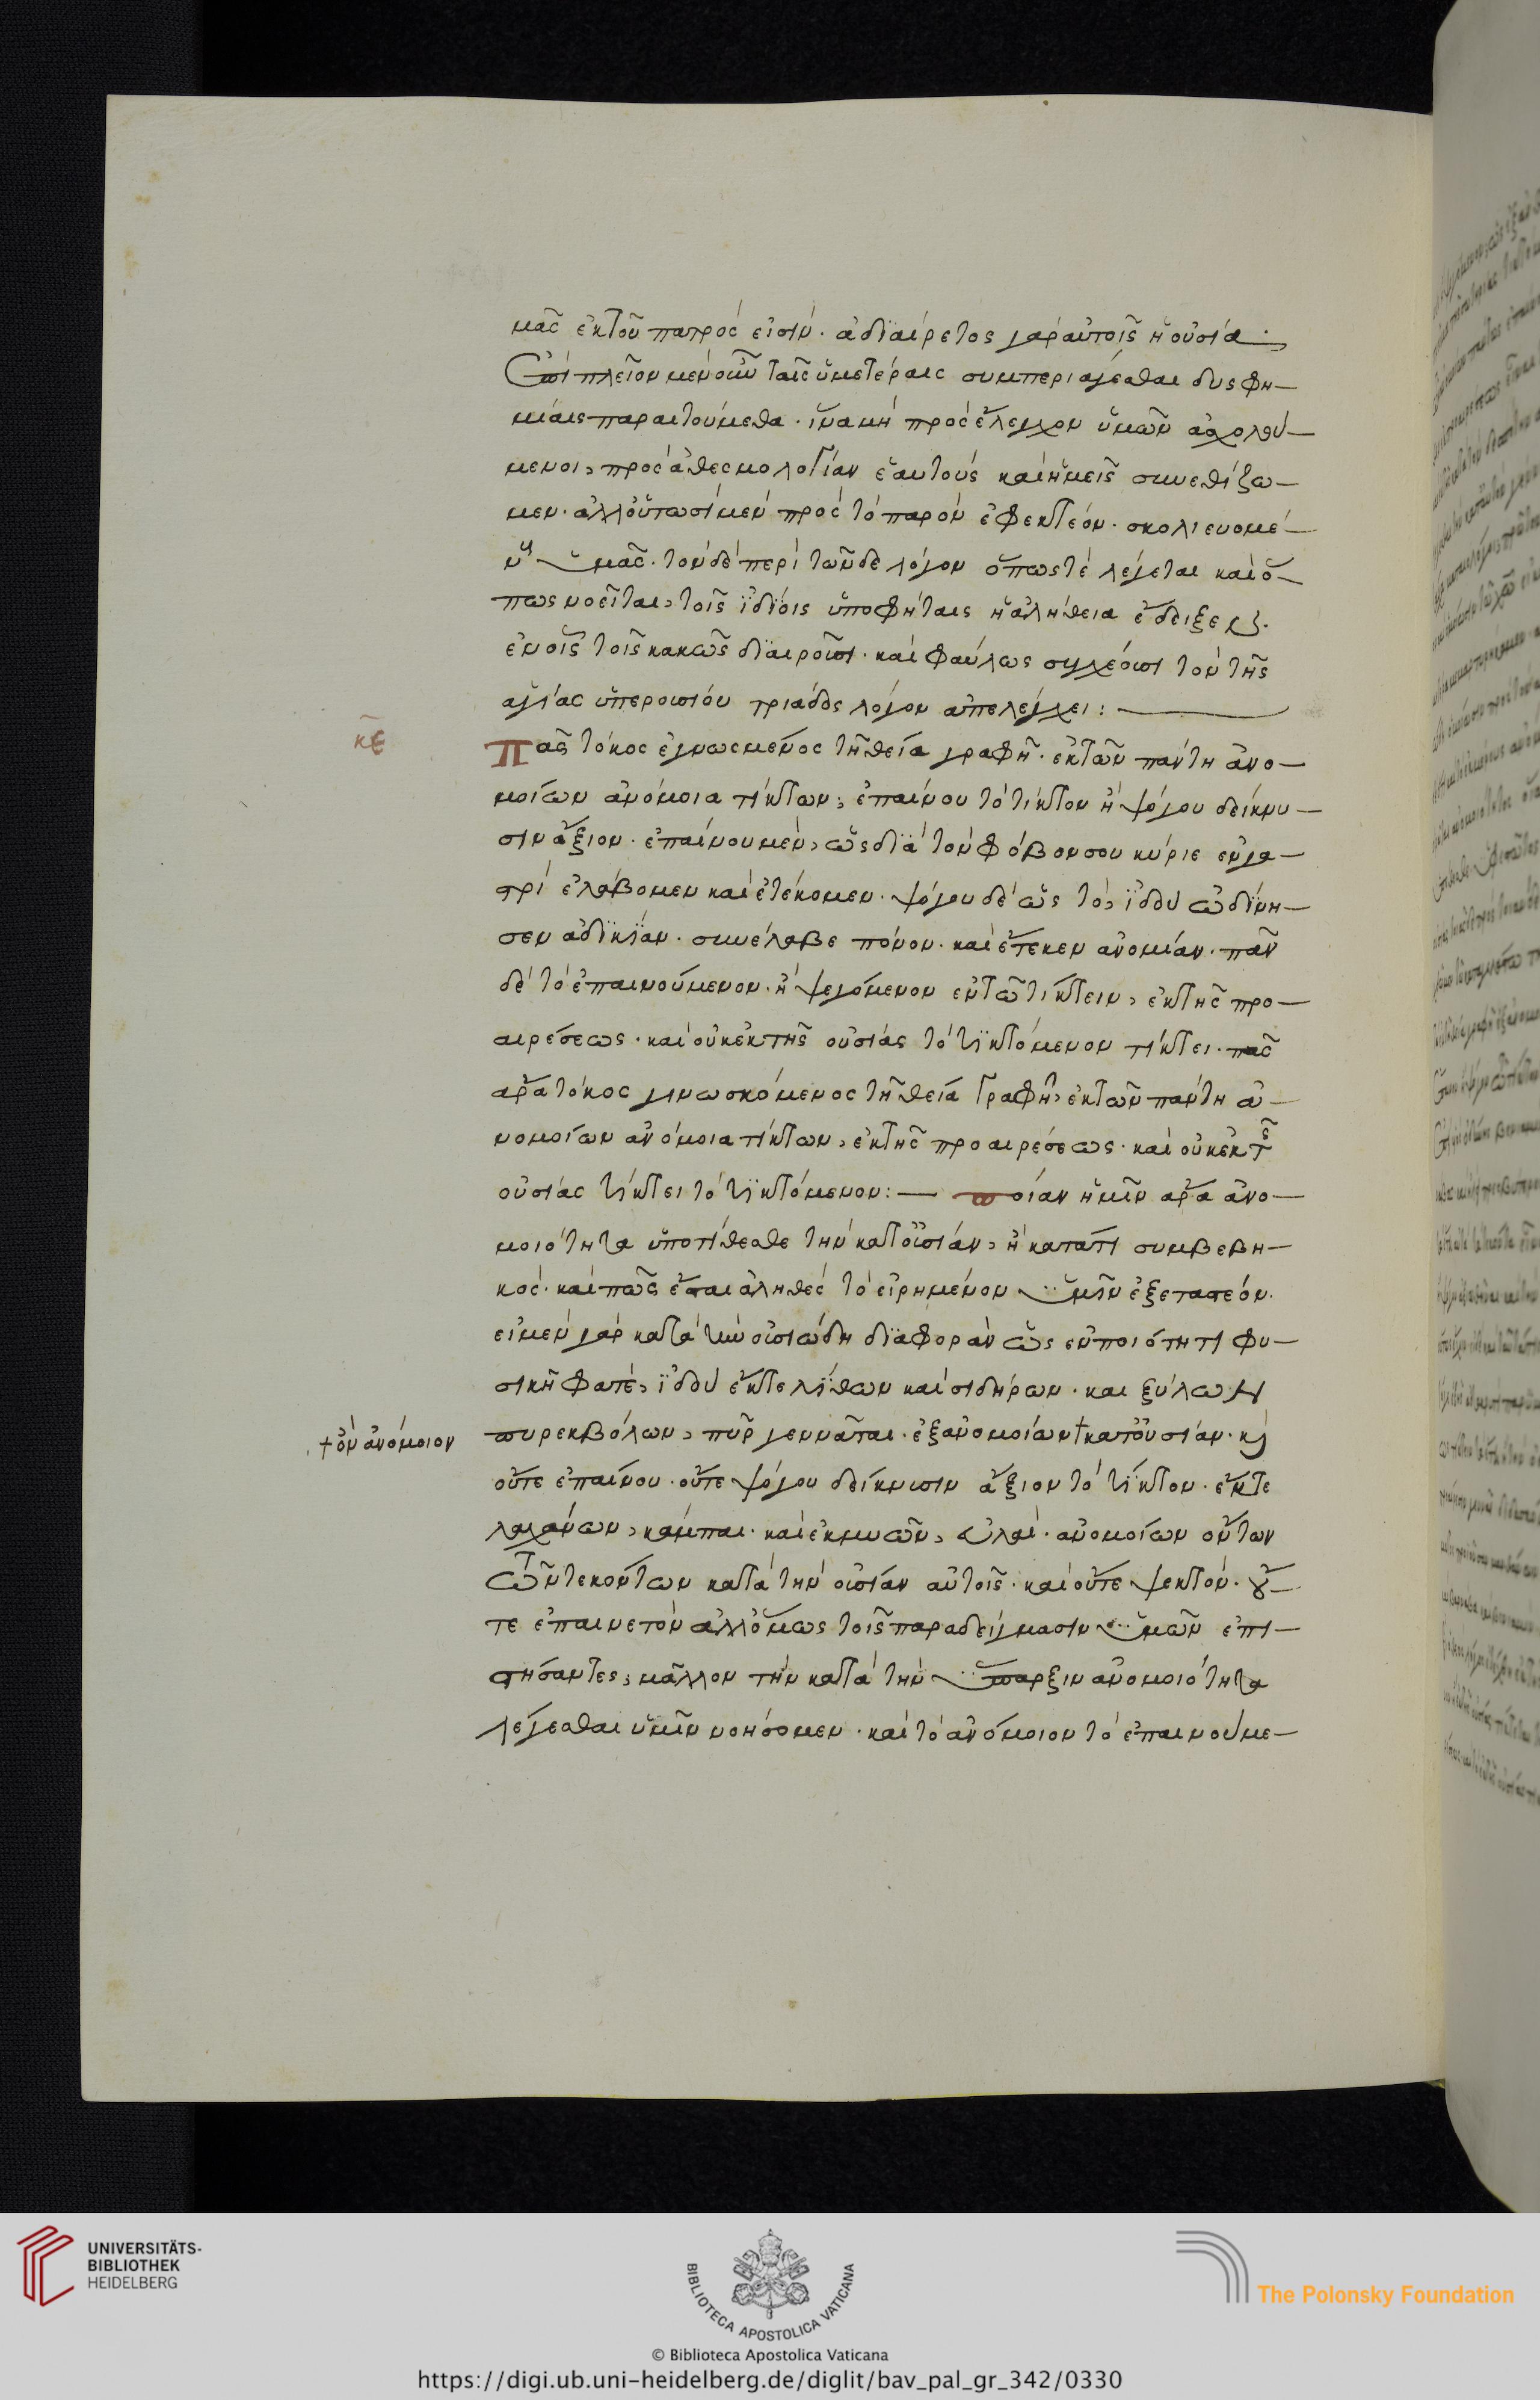 μᾶς ἐκτοῦ πατρός εἰσιν· ἀδϊαίρετος γὰρ αὐτοῖς ἡ οὐσία·
ἐπὶ πλεῖον μὲν οὖν ταῖς ὑμετέραις συμπεριάγεσθαι δυσφη–
μίαις παραιτούμεθα· ἵνα μὴ πρὸς ἔλεγχον ὑμῶν ἀσχολού–
μενοι, πρὸς ἀθεσμολογίαν ἑαυτοὺς καὶ ἡμεῖς συνεθίζω–
μεν· ἀλλ' οὕτωσὶ μὲν πρὸς τὸ παρὸν ἐφεκτέον· σκολιευομέ–
νους ὑμᾶς· τὸν δὲ περὶ τῶνδε λόγον ὅπως τὲ λέγεται καὶ ὅ–
πως νοεῖται, τοῖς ϊδίοις ὑποφήταις ἡ ἀλήθεια ἔδειξε καὶ.
ἐν οἷς τοῖς κακῶς διαιροῦσι· καὶ φαύλως συγχέουσι τὸν τῆς
ἁγίας ὑπερουσίου τριάδος λόγον ἀπελέγχει: —
κε
Πᾶς τόκος ἐγνωσμένος τῆ θεία γραφῆ· ἐκ τῶν πάντη ἀνο–
μοίων ἀνόμοια τίκτων, ἐπαίνου τὸ τίκτον ἢ ψόγου δείκνυ–
σιν ἄξιον· ἐπαίνου μὲν, ὡς διὰ τὸν φόβον σου κύριε ἐν γα–
στρὶ ἐλάβομεν καὶ ἐτέκομεν· ψόγου δὲ ὡς τὸ, ϊδοὺ ὠδίνη–
σεν ἀδικίαν· συνέλαβε πόνον· καὶ ἔτεκεν ἀνομίαν· πᾶν
δὲ τὸ ἐπαινούμενον· ἢ ψεγόμενον ἐν τῶ τίκτειν, ἐκ τῆς προ–
αιρέσεως· καὶ οὐκ ἐκ τῆς οὐσίας τὸ τϊκτόμενον τίκτει· πᾶς
ἄρα τόκος γινωσκόμενος τῆ θεία γραφῆ, ἐκ τῶν πάντη ἀ–
νομοίων ἀνόμοια τίκτων, ἐκ τῆς προαιρέσεως· καὶ οὐκ ἐκ τῆς
οὐσίας τίκτει τὸ τϊκτόμενον: — ποίαν ἡμῖν ἄρα ἀνο–
μοιότητα ὑποτίθεσθε τὴν κατ' οὐσίαν, ἢ κατά τι συμβεβη–
κός· καὶ πῶς ἔσται ἀληθὲς τὸ εἰρημένον ὑμῖν ἐξεταστέον.
εἰ μὲν γὰρ κατὰ τὴν οὐσιώδη διαφορὰν ὡς ἐν ποιότητι φυ–
σικῆ φατὲ, ϊδοὺ ἔκ τε λίθων καὶ σιδήρων· και ξύλων
πυρεκβόλων, πῦρ γεννᾶται· ἐξ ἀνομοίων † κατ' οὐσίαν· καὶ
† ὂν ἀνόμοιον
οὔτε ἐπαίνου· οὔτε ψόγου δείκνυσιν ἄξιον τὸ τίκτον· ἔκ τε
λαχάνων, κάμπαι· καὶ ἐκ μυῶν, εὐλαὶ· ἀνομοίων ὄντων
τῶν τεκόντων κατὰ τὴν οὐσίαν αὐτοῖς· καὶ οὔτε ψεκτόν· οὔ–
τε ἐπαινετὸν ἀλλ' ὅμως τοῖς παραδείγμασιν ὑμῶν ἐπι–
στήσαντες, μᾶλλον τὴν κατὰ τὴν ὕπαρξιν ἀνομοιότητα
λέγεσθαι ὑμῖν νοήσομεν· καὶ τὸ ἀνόμοιον τὸ ἐπαινούμε–
UNIVERSITÄTS-
BIBLIOTHEK
HEIDELBERG
BIBLIOTECA APOSTOLICA VATICANA
The Polonsky Foundation
© Biblioteca Apostolica Vaticana
https://digi.ub.uni-heidelberg.de/diglit/bav_pal_gr_342/0330